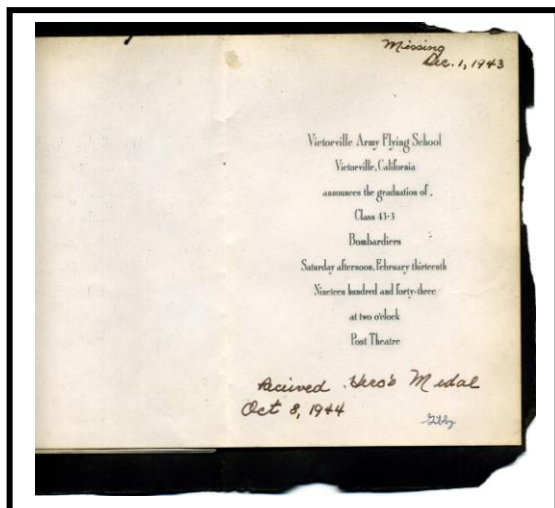 Missing
Dec. 1, 1943
Victorville Army Flying School
Victorville, California
announces the graduation of
Class 43-3
Bombardiers
Saturday afternoon, February thirteenth
Nineteen hundred and forty-three
at two o'clock
Post Theatre
Received Hero's Medal
Oct 8, 1944